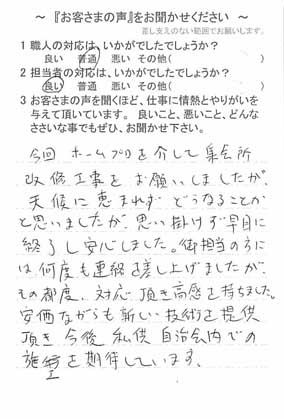 ～『お客さまの声』をお聞かせください ～
差し支えのない範囲でお願いします。
1 職人の対応は、いかがでしたでしょうか？
良い 普通 悪い その他( )
2 担当者の対応は、いかがでしたでしょうか？
良い 普通 悪い その他( )
3 お客さまの声を聞くほど、仕事に情熱とやりがいを
与えて頂いています。良いこと、悪いこと、どんな
ささいな事でもぜひ、お聞かせ下さい。
今回 ホームプロを介して集会所
改修工事をお願いしましたが、
天候に恵まれず どうなることか
と思いましたが、思い掛けず早目に
終了し安心しました。御担当の方に
は何度も連絡を差し上げましたが、
その都度、対応頂き高感を持ちました。
安価ながらも新しい技術を提供
頂き 今後 私供 自治会内での
施工を期待しています。